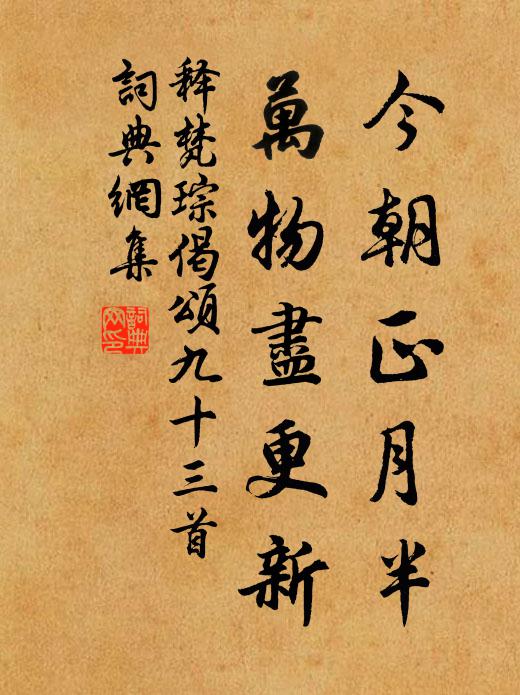 今朝正月半
萬物盡更新
释梵琮偈頌九十三首
詞典網集
詞典網印